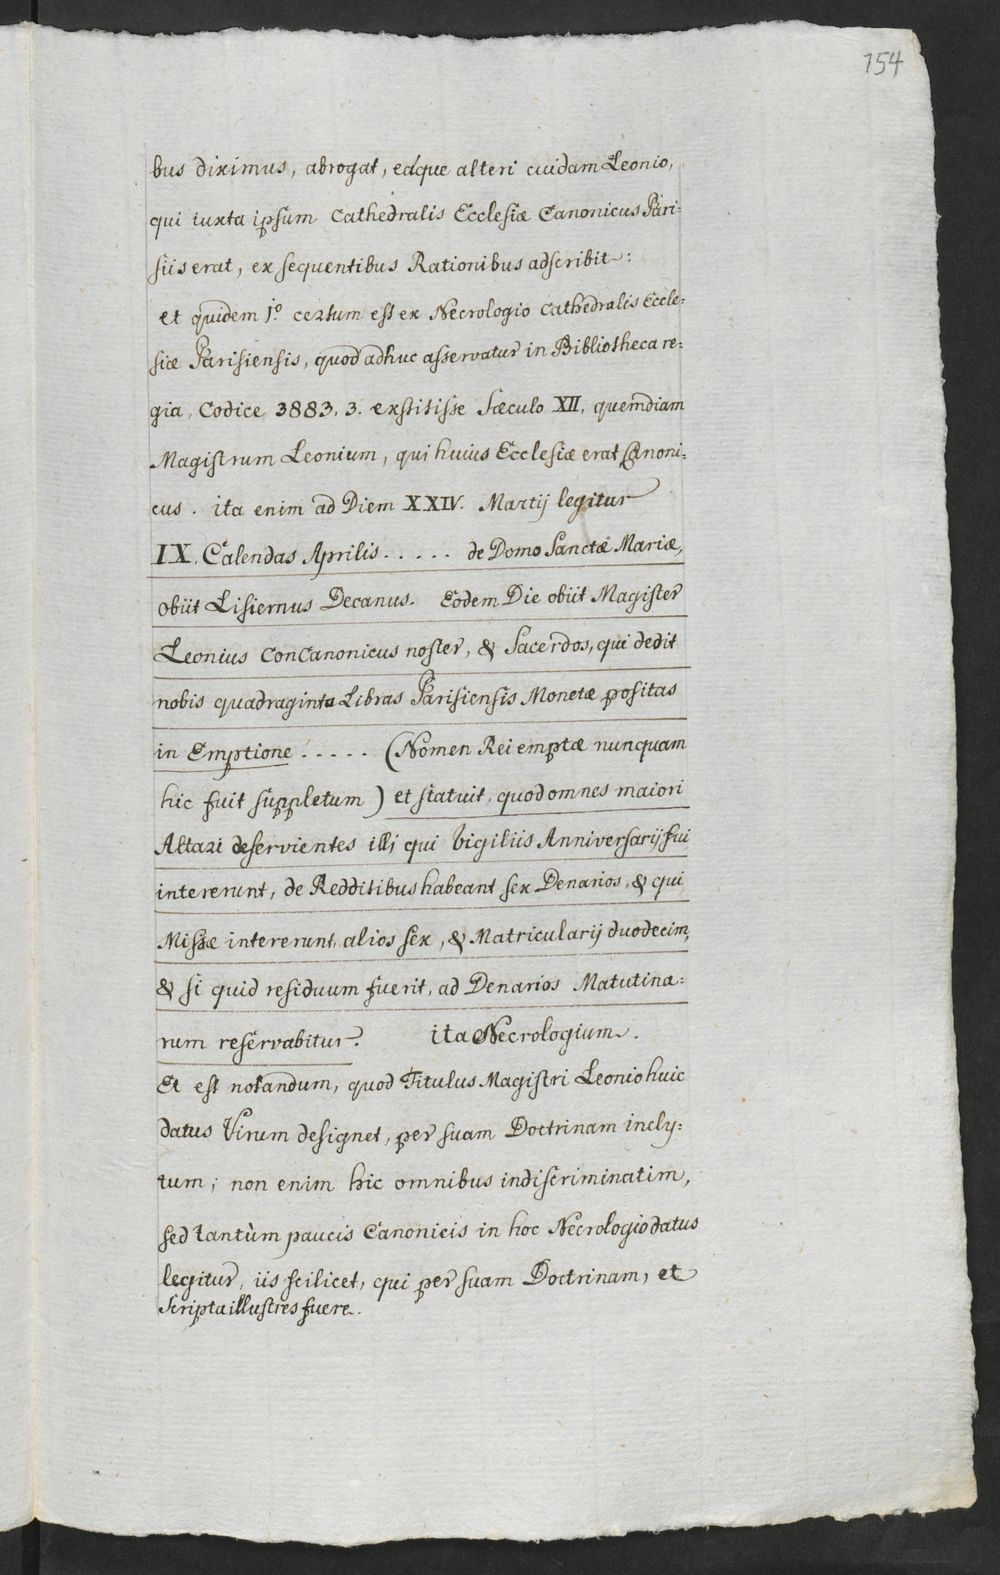 154
bus diximus, abrogat, eáque alteri cuidam Leonio,
qui iuxta ipsum Cathedralis Ecclesiæ Canonicus Pari:
siis erat, ex sequentibus Rationibus adscribit:
et quidem 1º certum est ex Necrologio Cathedralis Eccle:
siæ Parisiensis, quod adhuc asservatur in Bibliotheca re:
gia, Codice 3883. 3. exstitisse Sæculo XII. quemdiam
Magistrum Leonium, qui huius Ecclesiæ erat Canoni:
cus. ita enim ad Diem XXIV. Martij legitur
IX. Calendas Aprilis ..... de Domo Sanctæ Mariæ,
obiit Lisiernus Decanus. Eodem Die obiit Magister
Leonius ConCanonicus noster, & Sacerdos, qui dedit
nobis quadraginta Libras Parisiensis Monetæ positas
in Emptione ..... (Nomen Rei emptæ nunquam
hic fuit suppletum) et statuit, quod omnes maiori
Altari deservientes illi qui Vigiliis Anniversarij sui
intererunt, de Redditibus habeant sex Denarios, & qui
Missæ intererunt alios sex, & Matricularij duodecim,
& si quid residuum fuerit, ad Denarios Matutina:
rum reservabitur. ita Necrologium.
Et est notandum, quod Titulus Magistri Leonio huic
datus Virum designet, per suam Doctrinam incly:
tum; non enim hic omnibus indiscriminatim,
sed tantùm paucis Canonicis in hoc Necrologio datus
legitur, iis scilicet, qui per suam Doctrinam, et
Scripta illustres fuere.